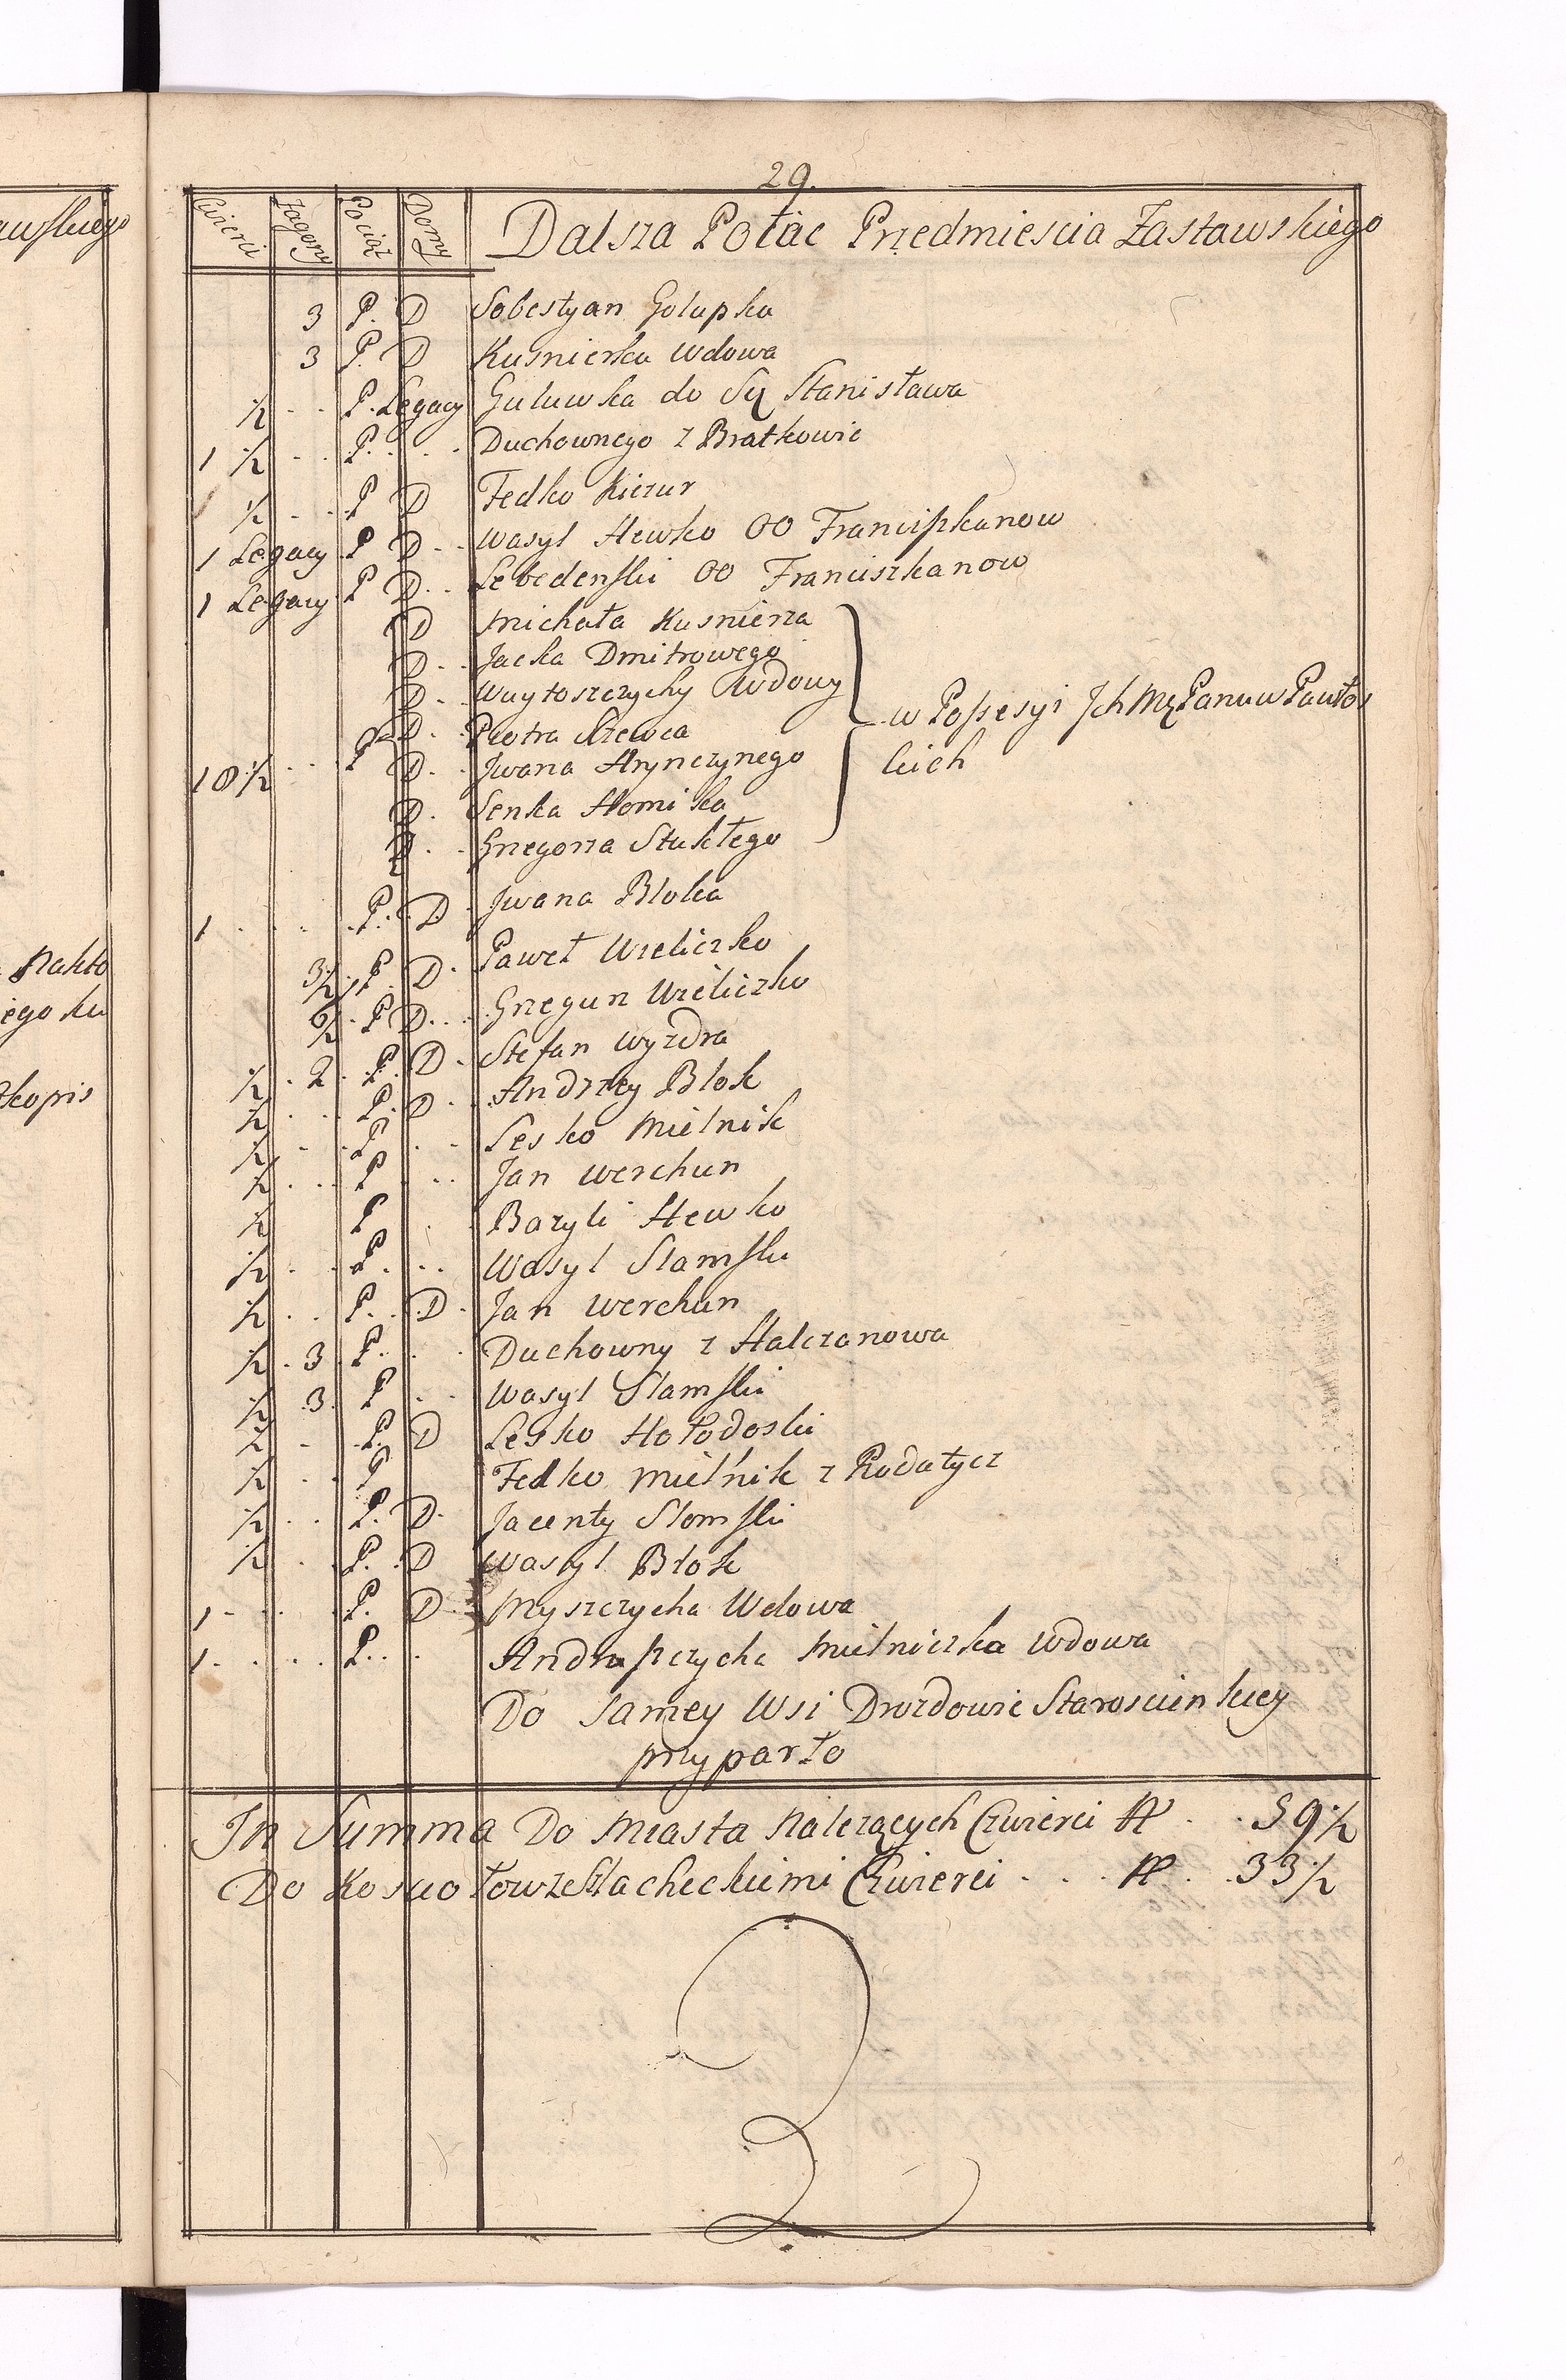 29.
Cwierci Zagony Pociąż Domy Dalsza Połac Przedmiescia Zastawskiego
3 P. D Sobestyan Golupka
3 P. D Kusnierka Wdowa
1/2 P. Legacy Guluwka do Sę Stanisława
1 1/2 P. Duchownego z Bratkowic
1/2 P D Fedko Kiczur
1 Legacy P D Wasyl Hewko OO Franciszkanow
1 Legacy P D Lebedenski OO Franciszkanow
D Michała Kusnierza
D Jacka Dmitrowego
D Waytoszczychy Wdowy
w Possesyi Jch Mę Panuw Pawłos
D Piotra Szewca
10 1/2 P D Jwana Hrynczynego
kich
D Senka Homika
D Grzegorza Stukłego
1 P. D Jwana Bloka
3 1/2 P. D Paweł Wieliczko
6/2 P D Grzegurz Wieliczko
1/2 2 P. D Stefan Wyzdra
1/2 P. D Andrzey Blok
1/2 P Lesko Mielnik
1/2 P Jan Werchun
1/2 P Bazyli Hewko
1/2 P Wasyl Slamski
1/2 P. D Jan Werchun
1/2 3 P. Duchowny z Halczanowa
1/2 3 P Wasyl Slamski
1/2 P. D Lesko Hołodoski
1/2 P Fedko Mielnik z Rodatycz
1/2 P. D Jacenty Slomski
1/2 P. D Wasyl Blok
1 P. D Myszczycha Wdowa
1 P. Andruszczycha Mielniczka Wdowa
Do Samey Wsi Drozdowic Staroscinskiey
przyparło
In Summa Do Miasta Nalezących Czwierci N 59 1/2
Do Kosciołow z Szlacheckiemi Czwierci N 33 1/2